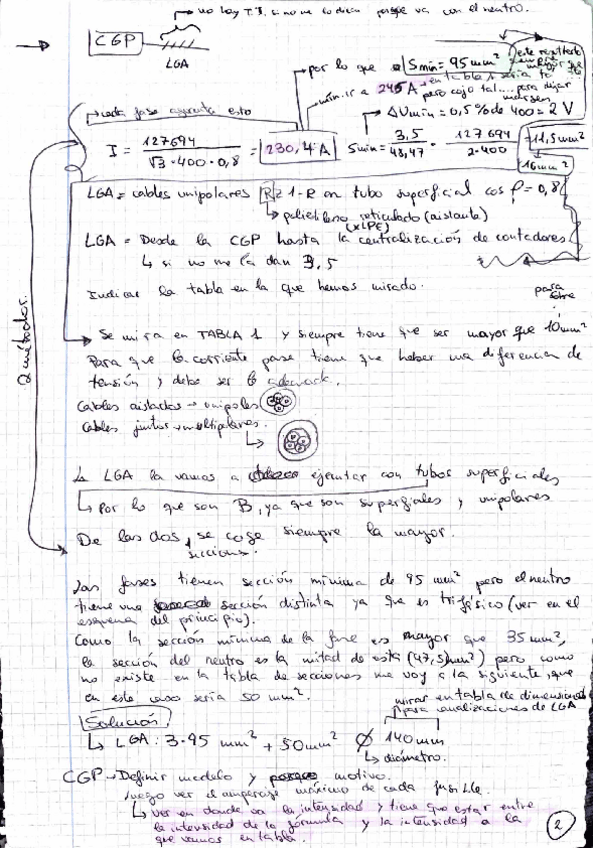 no hay T.T. si no me lo dicen porque va con el neutro.
CGP
LGA
por lo que Smin = 95 mm²
min. ir a 245 A en tabla sería 70
pero cojo tal.... para dejar
margen
cada fase aguanta esto
ΔUmin = 0,5% de 400 = 2 V
I = 127694 / √3 · 400 · 0,8 = 230,4 A
Smin = 3,5 / 48,47 · 127694 / 2·400 = 11,5 mm²
16 mm²
LGA = cables unipolares RZ1-R en tubo superficial cos φ = 0,8
polietileno reticulado (aislante)
(XLPE)
LGA = Desde la CGP hasta la centralización de contadores
si no me la dan 3,5
Indicar la tabla en la que hemos mirado.
para
cobre
2 métodos.
Se mira en TABLA 1 y siempre tiene que ser mayor que 10 mm²
Para que la corriente pase tiene que haber una diferencia de
tensión y debe ser la adecuada.
Cables aislados → unipoles
Cables juntos → multipolares.
La LGA la vamos a ejecutar con tubos superficiales
Por lo que son B, ya que son superfiales y unipolares
De las dos secciones se coge siempre la mayor.
Las fases tienen sección mínima de 95 mm² pero el neutro
tiene una sección distinta ya que es trifásico (ver en el
esquema del principio).
Como la sección mínima de la fase es mayor que 35 mm²,
la sección del neutro es la mitad de esta (47,5) mm²) pero como
no existe en la tabla de secciones me voy a la siguiente que
en este caso sería 50 mm².
mirar en tabla de dimensiones
para canalizaciones de LGA
Solución
LGA: 3·95 mm² + 50 mm² Ø 140 mm
diámetro.
CGP → Definir modelo y motivo.
Luego ver el amperaje máximo de cada fusible.
ver en donde va la intensidad y tiene que estar entre
la intensidad de la fórmula y la intensidad a la
que vamos en tabla.
2